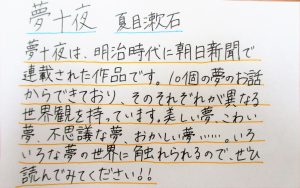 夢十夜　夏目漱石
夢十夜は、明治時代に朝日新聞で
連載された作品です。10個の夢のお話
からできており、そのそれぞれが異なる
世界観を持っています。美しい夢、こわい
夢、不思議な夢、おかしい夢……。いろ
いろな夢の世界に触れられるので、ぜひ
読んでみてください!!